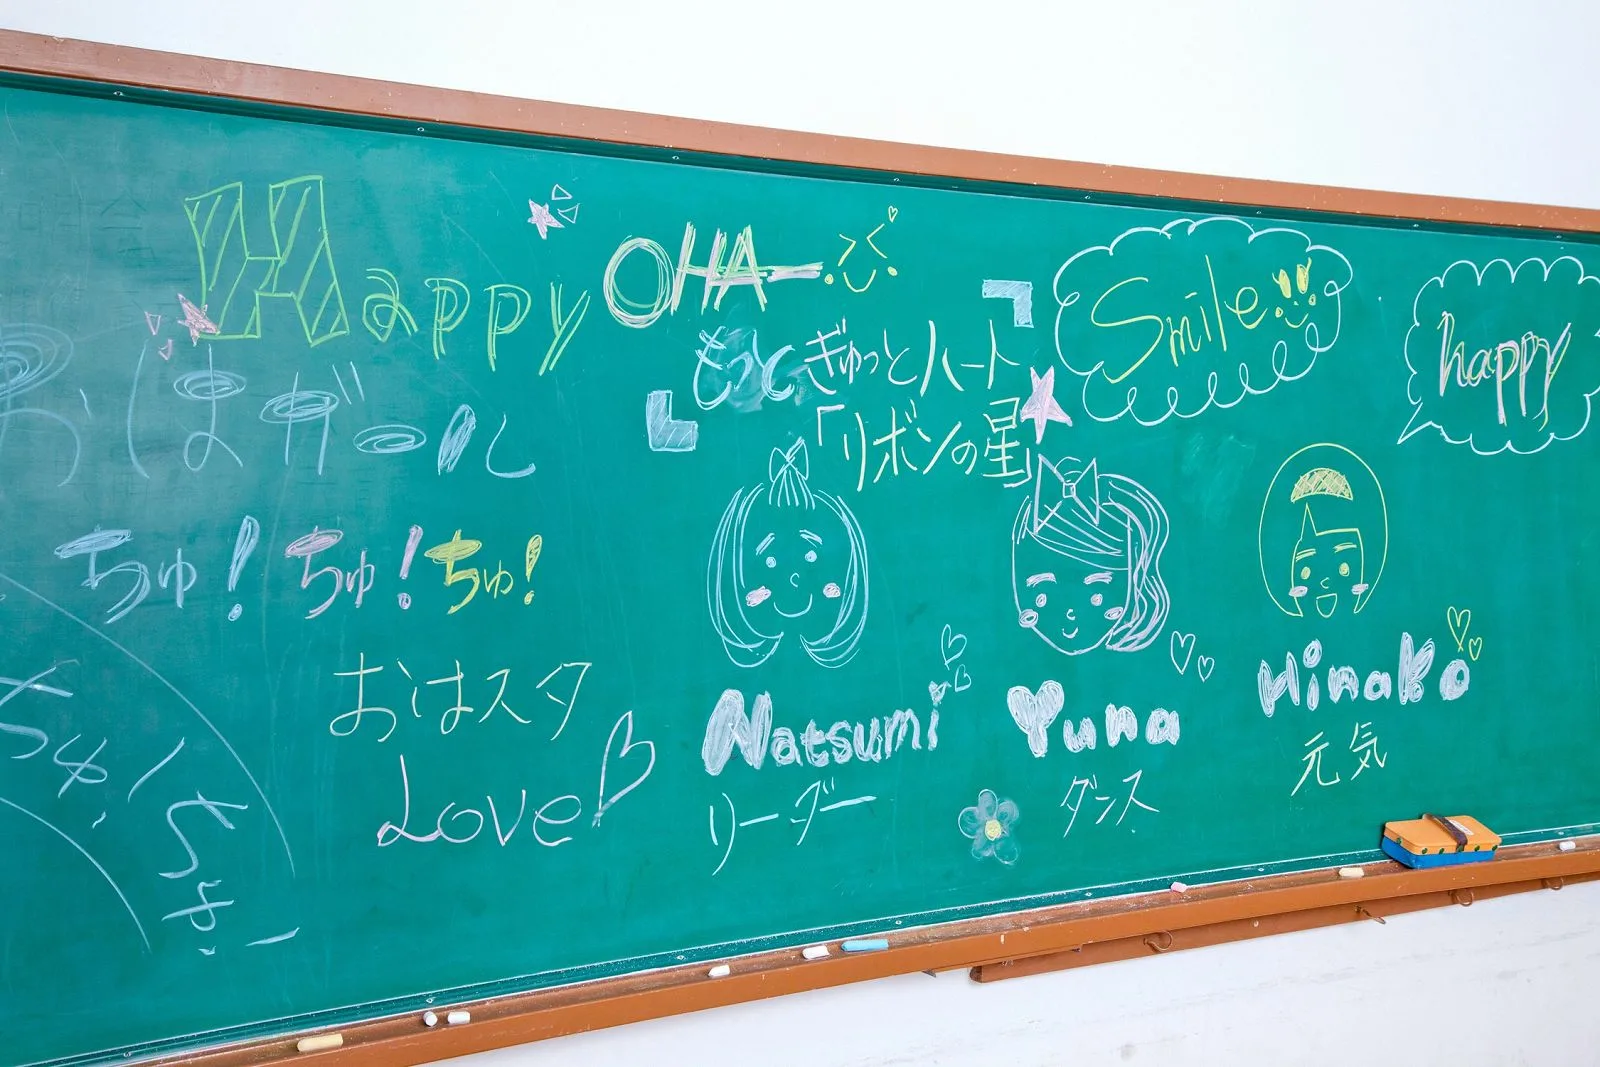 Happy OHA
おはガール
ちゅ！ちゅ！ちゅ！
おはスタ
Love
ちゅ！ちゅ！
もっとぎゅっとハート
「リボンの星」
Smile
happy
Natsumi
リーダー
Yuna
ダンス
Hinako
元気